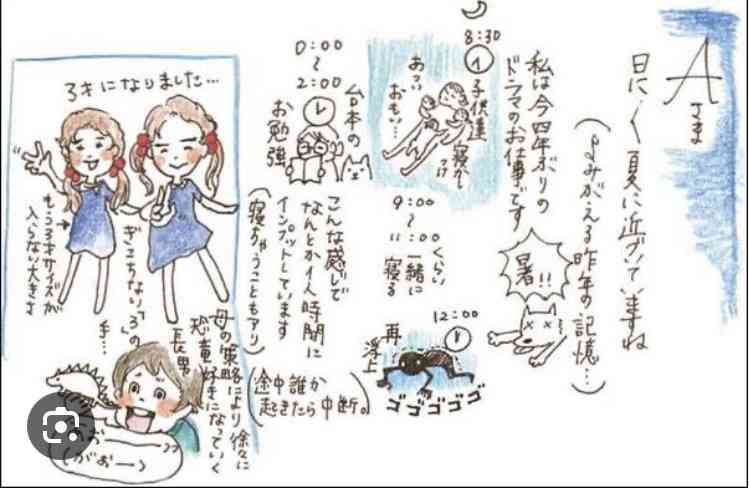 Aさま
日に日に夏に近づいていますね
(よみがえる昨年の記憶…)
暑!!
私は今四年ぶりの
ドラマのお仕事です
8:30
子供達
寝かしつけ
あつい
おもい…
9:00
〜
11:00くらい
一緒に
寝る
12:00
再
浮上
ゴゴゴゴゴゴ
0:00
〜
2:00
台本の
お勉強
こんな感じで
なんとか1人時間に
インプットしています
(寝ちゃうこともアリ)
(途中誰か
起きたら中断。)
3才になりました…
ぎこちない「3」の
手…
もう3才サイズが
入らない大きさ
母の策略により徐々に
恐竜好きになっていく
長男
がおー